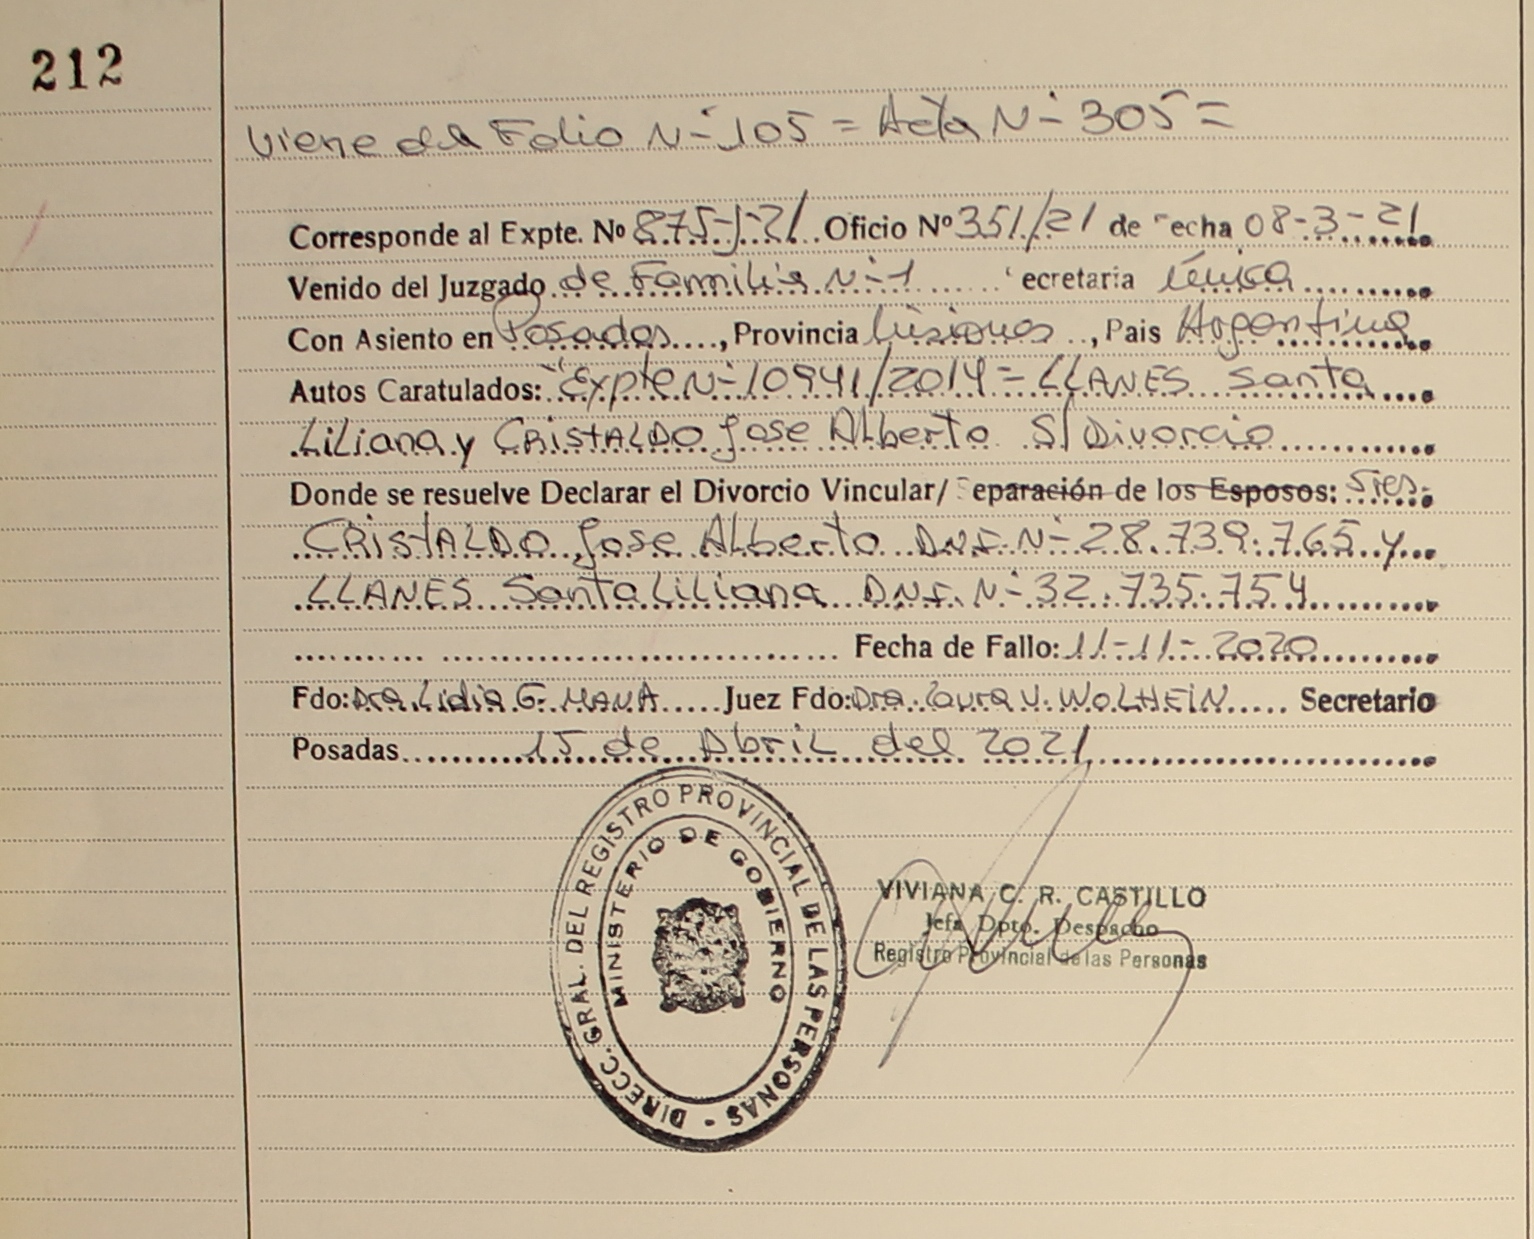 212
Viene del Folio N- 105 = Acta N- 305 =
Corresponde al Expte. Nº 875-J-21 Oficio Nº 351/21 de echa 08-3-21
Venido del Juzgado de Familia N-1 ecretaria Única
Con Asiento en Posadas, Provincia Misiones, Pais Argentina
Autos Caratulados: "Expte N- 10941/2014 = LLANES Santa
Liliana y CRISTALDO Jose Alberto S/ Divorcio
Donde se resuelve Declarar el Divorcio Vincular/ eparación de los Esposos: Sres.
CRISTALDO Jose Alberto D.N.I. N- 28.739.765 y
LLANES Santa Liliana D.N.I. N- 32.735.754
Fecha de Fallo: 11-11-2020
Fdo: Dra. Lidia G. MANA Juez Fdo: Dra. Laura V. WOLHEIN Secretario
Posadas 15 de Abril del 2021
DIRECC. GRAL. DEL REGISTRO PROVINCIAL DE LAS PERSONAS -
MINISTERIO DE GOBIERNO
VIVIANA C. R. CASTILLO
Jefa Dpto. Despacho
Registro Provincial de las Personas